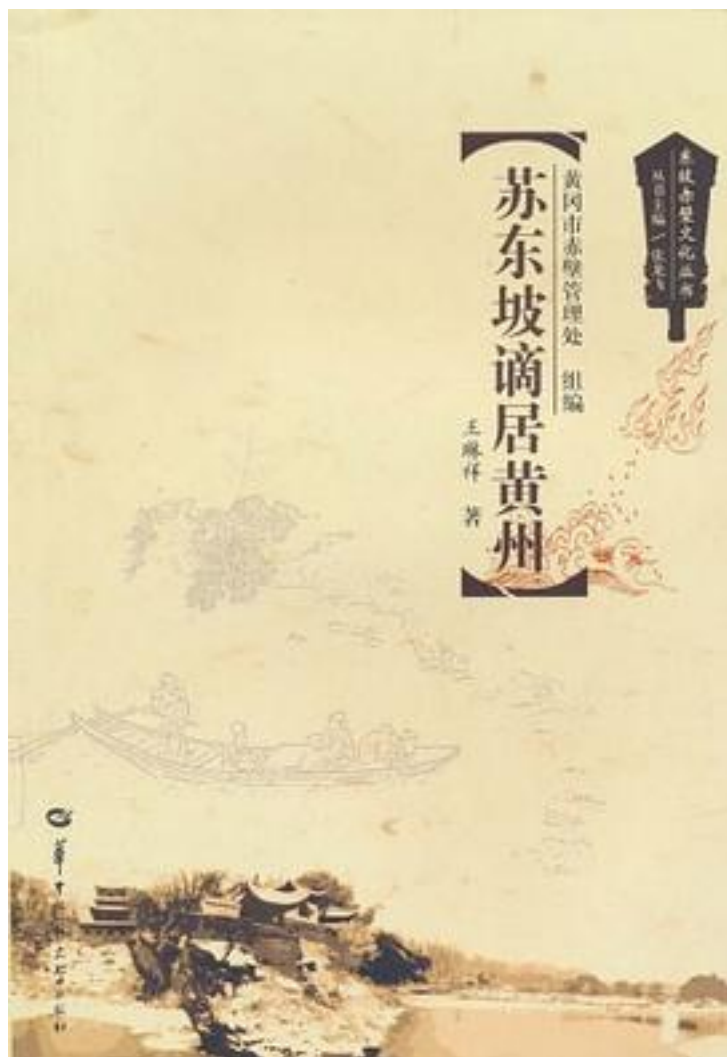 东坡赤壁文化丛书
丛书主编
黄冈市赤壁管理处 组编
苏东坡谪居黄州
王琳祥 著
华中师范大学出版社